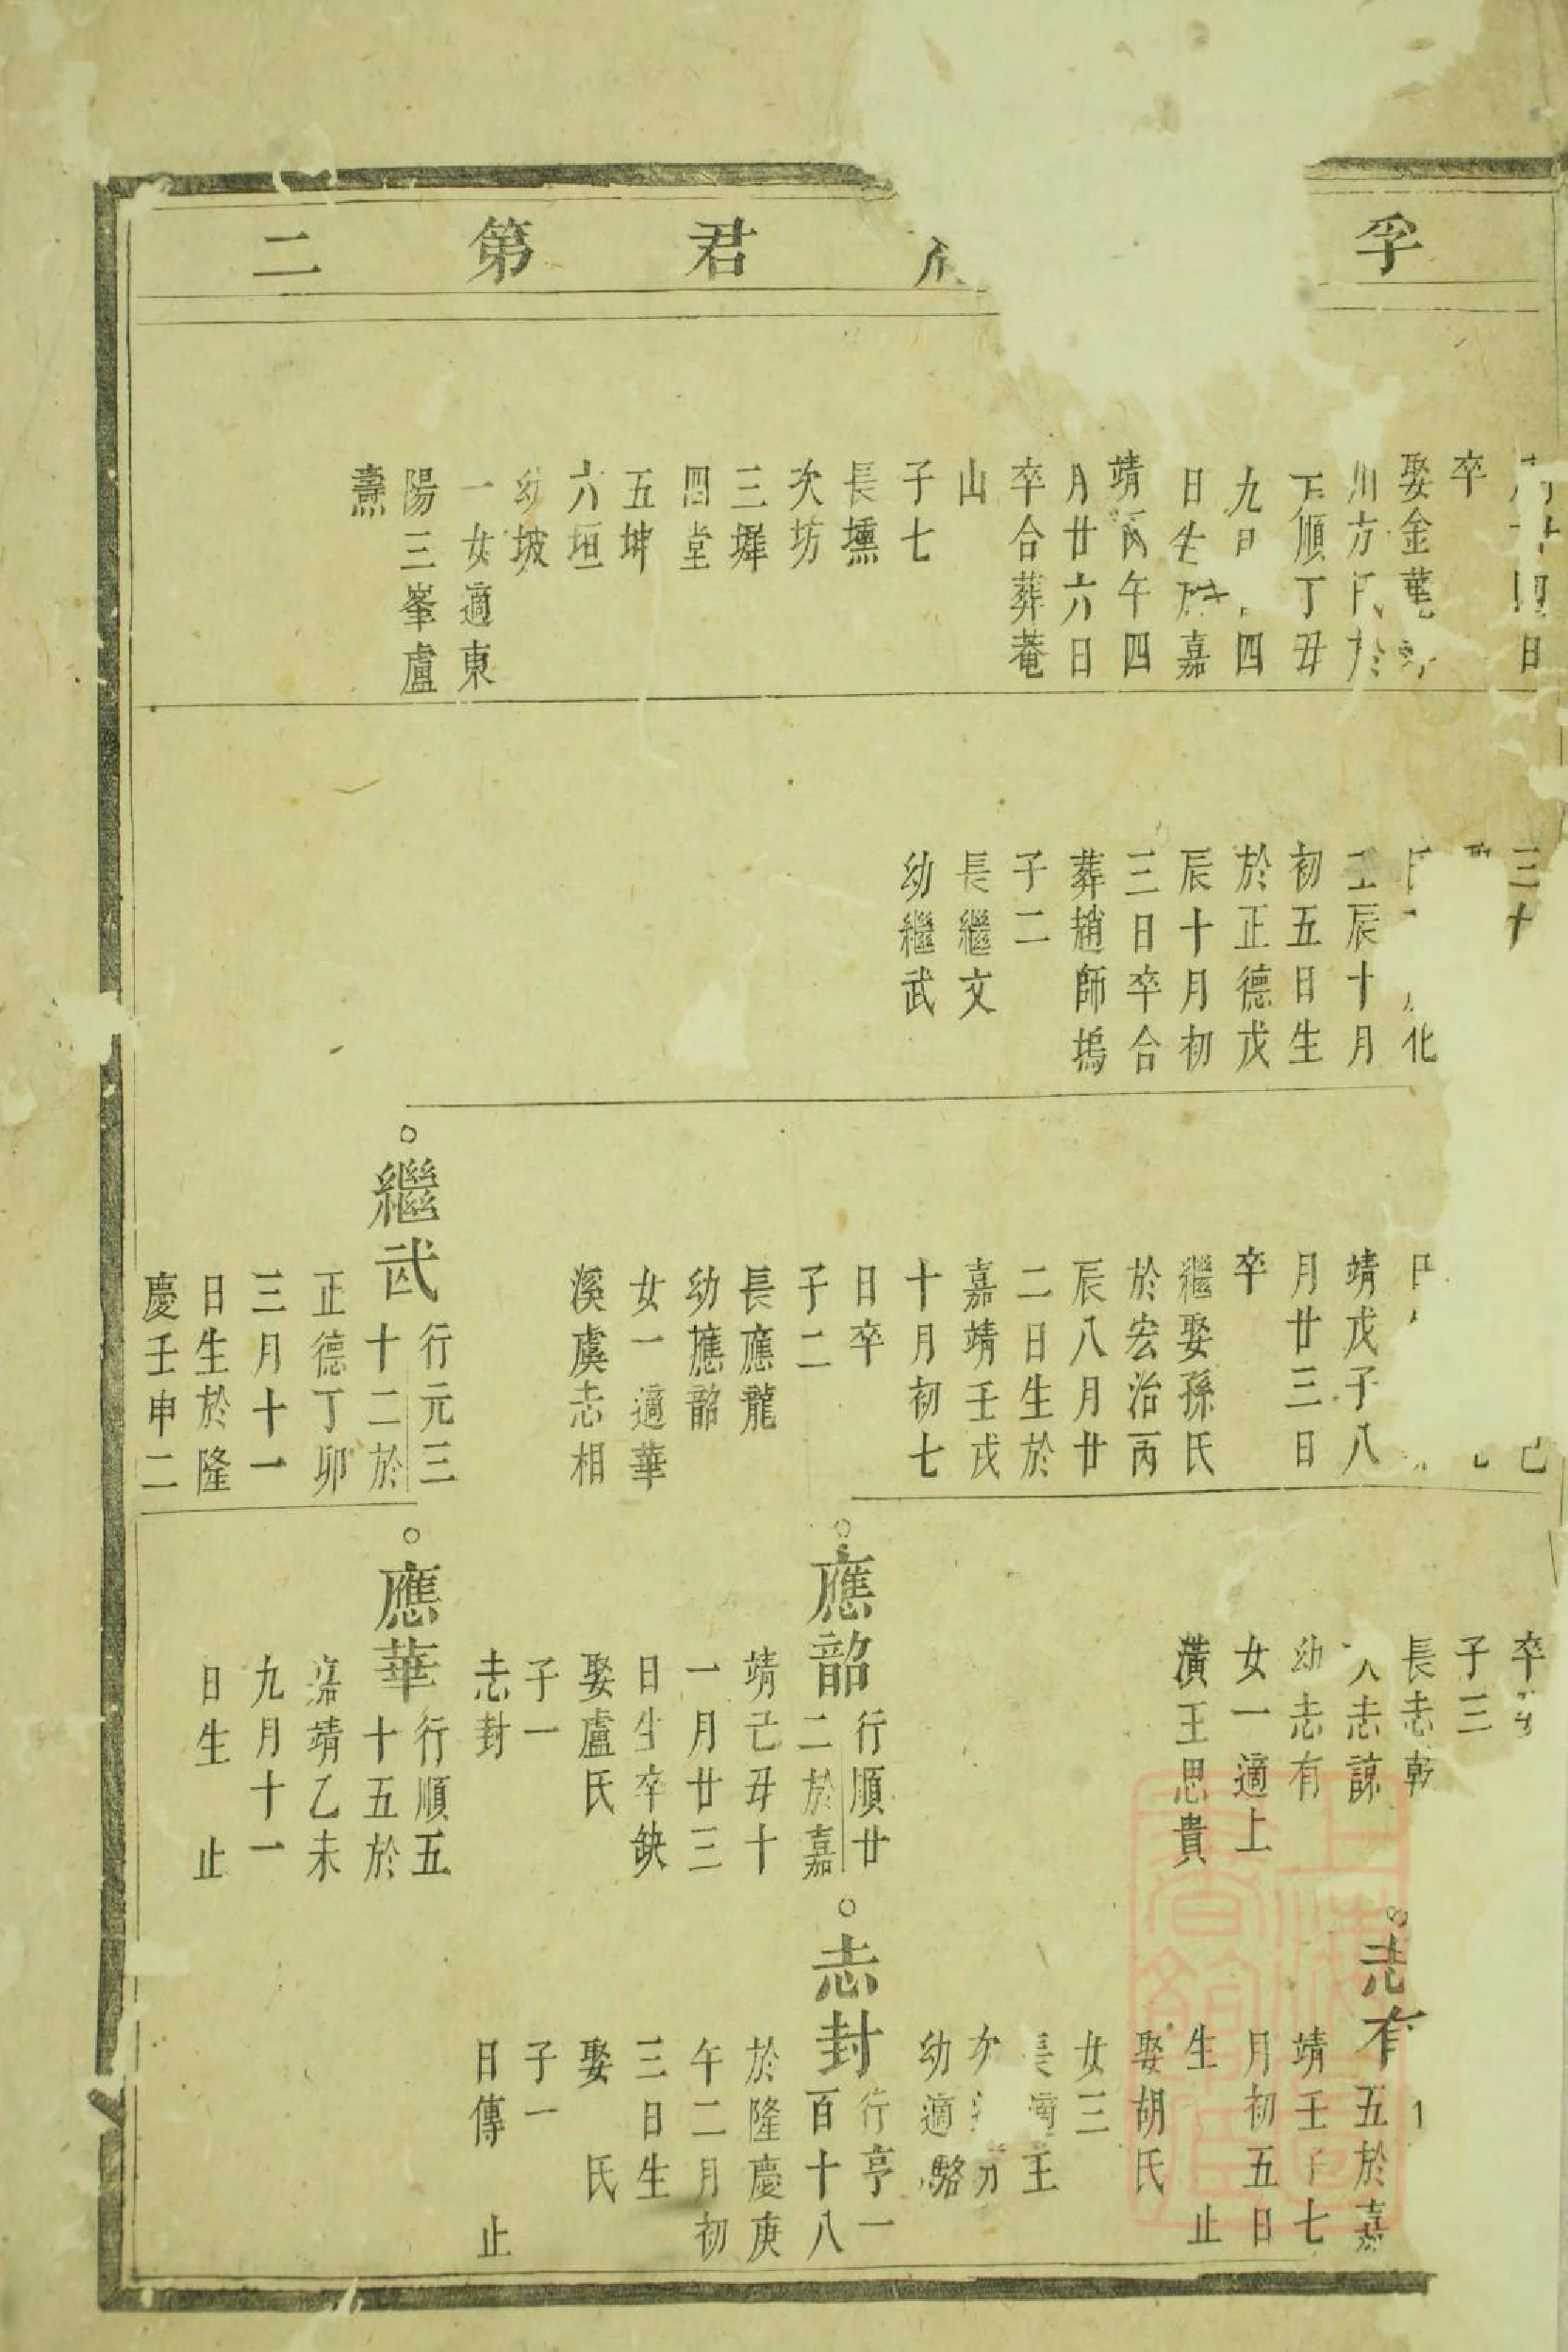 孚 君第二
日
卒
娶金華
川方氏於
順丁丑
九月 四
日生於嘉
靖丙午四
月廿六日
卒合葬菴
山
子七
長壎
次坊
三墀
四堂
五坤
六垣
幼坡
一女適東
陽三峯盧
燾
三十
化
壬辰十月
初五日生
於正德戊
辰十月初
三日卒合
葬趙師塢
子二
長繼文
幼繼武
靖戊子八
月廿三日
卒
繼娶孫氏
於宏治丙
辰八月廿
二日生於
嘉靖壬戌
十月初七
日卒
子二
長應龍
幼應韶
女一適華
溪虞志相
繼武行元三
十二於
正德丁卯
三月十一
日生於隆
慶壬申二
卒
子三
長志乾
次志諒
幼志有
女一適上
潢王思貴
應韶行順廿
二於嘉
靖己丑十
一月廿三
日生卒缺
娶盧氏
子一
志封
應華行順五
十五於
嘉靖乙未
九月十一
日生 止
志有
五於嘉
靖壬子七
月初五日
生 止
娶胡氏
女三
長適王
次
幼適駱
志封行亨一
百十八
於隆慶庚
午二月初
三日生
娶 氏
子一
日傳 止